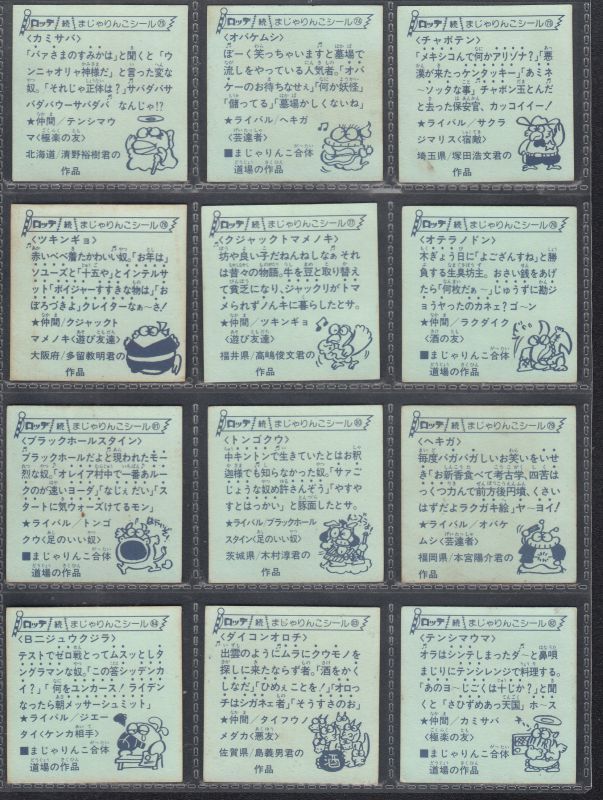 ロッテ 続 まじゃりんこシール 75
〈カミサバ〉
「バァさまのすみかは」と聞くと「ウ
ンニャオリャ神様だ」と言った変な
奴。「それじゃ正体は?」サバダバサ
バダバウーサバダバ なんじゃ!?
★仲間/テンシウマ
ウマ〈極楽の友〉
北海道/清野裕樹君の
作品
ロッテ 続 まじゃりんこシール 74
〈オバケムシ〉
ぼーく 笑っちゃいますと墓場で
流しをやっている人気者。「オバ
ケーのお待ちなせえ」「何か妖怪」
「儲ってる」「墓場かしくないね」
★仲間/ヘキガ
〈芸達者〉
■まじゃりんこ合体
道場の作品
ロッテ 続 まじゃりんこシール 73
〈チャボテン〉
「メキシコんて何かアリゾナ?」悪
漢が来たっケンタッキー」「あミネ
〜ソッタな事」チャボン玉とんだ
と去った保安官、カッコイイー!
★ライバル/サクラ
ジマリス〈宿敵〉
埼玉県/塚田浩文君の
作品
ロッテ 続 まじゃりんこシール 78
〈ツキンギョ〉
赤いベベ着たかわいい奴。「お年は」
ソユーズと「十五や」とインテルサ
ット「ボイジャーすすきな物は」「お
ぼろづきよ」クレイターなぁーさ!
★仲間/クジャット
マメノキ〈遊び友達〉
大阪府/多留教明君の
作品
ロッテ 続 まじゃりんこシール 77
〈クジャックトマメノキ〉
坊や良い子だねんねしなぁ それ
は昔々の物語。牛を豆と取り替え
て貧乏になり、ジャックリがトマ
メられずノンキに暮らしたとサ。
★仲間/ツキンギョ
〈遊び友達〉
福井県/高嶋俊文君の
作品
ロッテ 続 まじゃりんこシール 76
〈オテラノドン〉
木ぎょう日に「よこざんすね」と勝
負する生臭坊主。おさい銭をあげ
たら「何枚だぁ〜」じゅうずに勘ジ
ョウヤったのカネェ?ゴ〜ン
★仲間/ラクダイク
〈酒の友〉
■まじゃりんこ合体
道場の作品
ロッテ 続 まじゃりんこシール 81
〈ブラックホールスタイン〉
ブラックホールだよと現われたモー
烈な奴。「オレイア村中で一番あルー
クのが速いヨーダ」「なじぇだい」「ス
タートに気ウォーズけてるモン」
★ライバル/トンゴ
クウ〈足のいい奴〉
■まじゃりんこ合体
道場の作品
ロッテ 続 まじゃりんこシール 80
〈トンゴクウ〉
中キントンで生きていたとはお釈
迦様でも知らなかった奴。「サァご
じょうな奴め許さんぞう」「やすや
すとはっかい」と豚面したとサ。
★ライバル/ブラックホール
スタイン〈足のいい奴〉
茨城県/木村淳君の
作品
ロッテ 続 まじゃりんこシール 79
〈ヘキガ〉
毎度バガバガしいお笑いをいせ
き!「お新香食べて考古学、四苦は
っくつ力んで前方後円墳、くさい
はずだよラクガキ絵」ヤ-ヨイ!
★ライバル/オバケ
ムシ〈芸達者〉
福岡県/本宮陽介君の
作品
ロッテ 続 まじゃりんこシール 84
〈Bニジュウクジラ〉
テストでゼロ戦とってムスッとしタ
ングラマンな奴。「この答シッテンカ
イ?」「何をユンカース!ライデン
なったら朝メッサーシュミット」
★ライバル/ジエー
タイ〈ケンカ相手〉
■まじゃりんこ合体
道場の作品
ロッテ 続 まじゃりんこシール 83
〈ダイコンオロチ〉
出雲のようにムラにクウモノを
探しに来たならず者。「酒をかく
しなだ」「ひめぇことを」「オロッ
チはシガネェ者」「そうすさのお」
★仲間/タイフウノ
メダカ〈悪友〉
佐賀県/島義男君の
作品
酒
ロッテ 続 まじゃりんこシール 82
〈テンシマウマ〉
オラはシンテしまったダ〜と鼻唄
まじりにテンシレンジで料理する。
「あのヨ〜じごくは十じか?」と聞
くと「さひずめあっ天国」ホ〜ス
★仲間/カミサバ
〈極楽の友〉
■まじゃりんこ合体
道場の作品